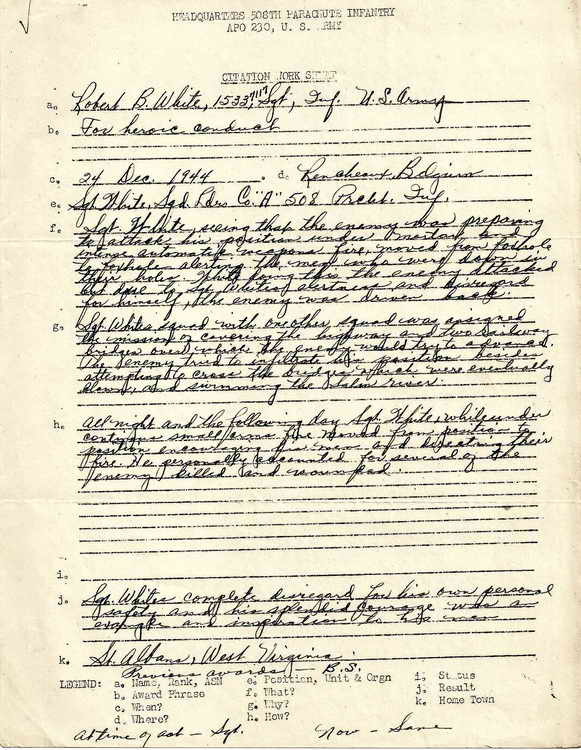 HEADQUARTERS 508TH PARACHUTE INFANTRY
APO 230, U. S. ARMY
CITATION WORK SHEET
a. Robert B. White, Sgt, Inf. U.S. Army
b. For heroic conduct
c. 24 Dec. 1944 d. Rencheaux, Belgium
e. Sgt White, Sqd. Ldr. Co. "A" 508 Prcht. Inf.
f. Sgt White, seeing that the enemy was preparing
to attack his position under mortar and
intense automatic weapons fire, moved from foxhole
to foxhole alerting the men who were down in
their holes. While doing this the enemy attacked
but due to Sgt Whites alertness and disregard
for himself, the enemy was driven back.
g. Sgt. Whites squad with one other squad was assigned
the mission of covering the highway and two railway
bridges over which the enemy would try to advance.
The enemy tried to infiltrate the position besides
attempting to cross the bridges which were eventually
blown, and swimming the Salm river.
h. All night and the following day Sgt. White, while under
small arms fire moved from position to
position encouraging his men and directing their
fire. He personally accounted for several of the
enemy killed and wounded.
i.
j. Sgt. Whites complete disregard for his own personal
safety and his splendid courage was a
example and inspiration to his men
k. St. Albans, West Virginia.
Previous awards — B.S.
LEGEND: a. Name, Rank, ASN e. Position, Unit & Orgn i. Status
b. Award Phrase f. What? j. Result
c. When? g. Why? k. Home Town
d. Where? h. How?
At time of act — Sgt. Now — Same